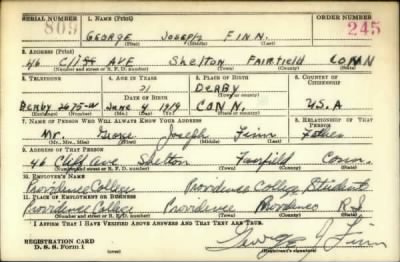 SERIAL NUMBER 1. NAME (Print) ORDER NUMBER
809 GEORGE JOSEPH FINN. 245
(First) (Middle) (Last)
2. ADDRESS (Print)
46 Cliff AVE Shelton Fairfield CONN
(Number and street or R. F. D. number) (Town) (County) (State)
3. TELEPHONE 4. AGE IN YEARS 5. PLACE OF BIRTH 6. COUNTRY OF CITIZENSHIP
21 DERBY
DATE OF BIRTH (Town or county)
DERBY 2675-W June 4 1919 CONN. U.S.A
(Exchange) (Number) (Mo.) (Day) (Yr.) (State or country)
7. NAME OF PERSON WHO WILL ALWAYS KNOW YOUR ADDRESS 8. RELATIONSHIP OF THAT PERSON
Mr. George Joseph Finn Father
(Mr., Mrs., Miss) (First) (Middle) (Last)
9. ADDRESS OF THAT PERSON
46 Cliff Ave Shelton Fairfield Conn.
(Number and street or R. F. D. number) (Town) (County) (State)
10. EMPLOYER'S NAME
Providence College Providence College, Student
11. PLACE OF EMPLOYMENT OR BUSINESS
Providence College Providence Providence R.I.
(Number and street or R. F. D. number) (Town) (County) (State)
I AFFIRM THAT I HAVE VERIFIED ABOVE ANSWERS AND THAT THEY ARE TRUE.
REGISTRATION CARD
D. S. S. Form 1
George J Finn
(Registrant's signature)